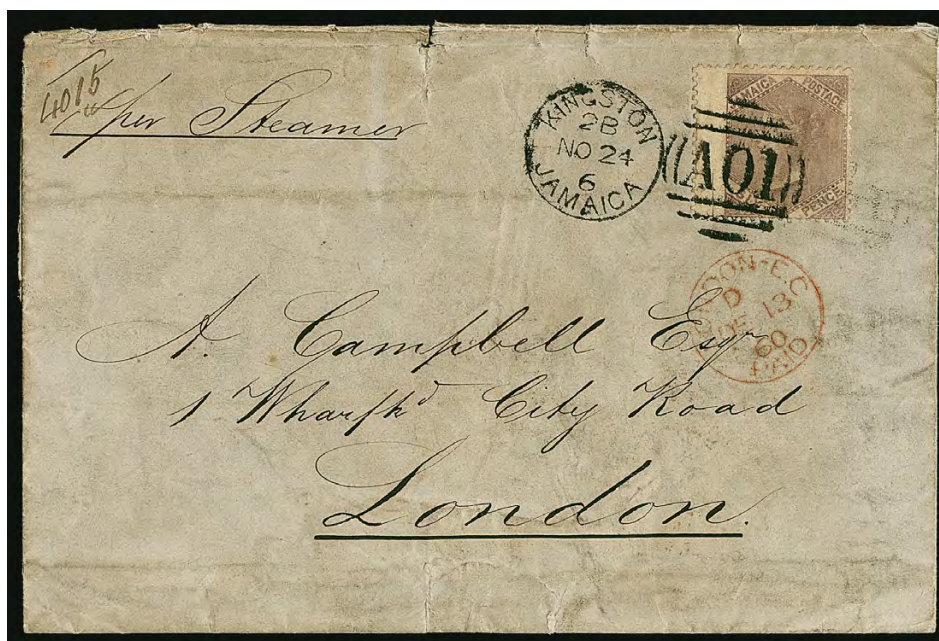 4015
per Steamer
KINGSTON
2B
NO 24
6
JAMAICA
A01
JAMAICA POSTAGE
PENCE
LONDON-E.C
D
DE 13
60
PAID
A. Campbell Esqr
1 Wharf Rd City Road
London.